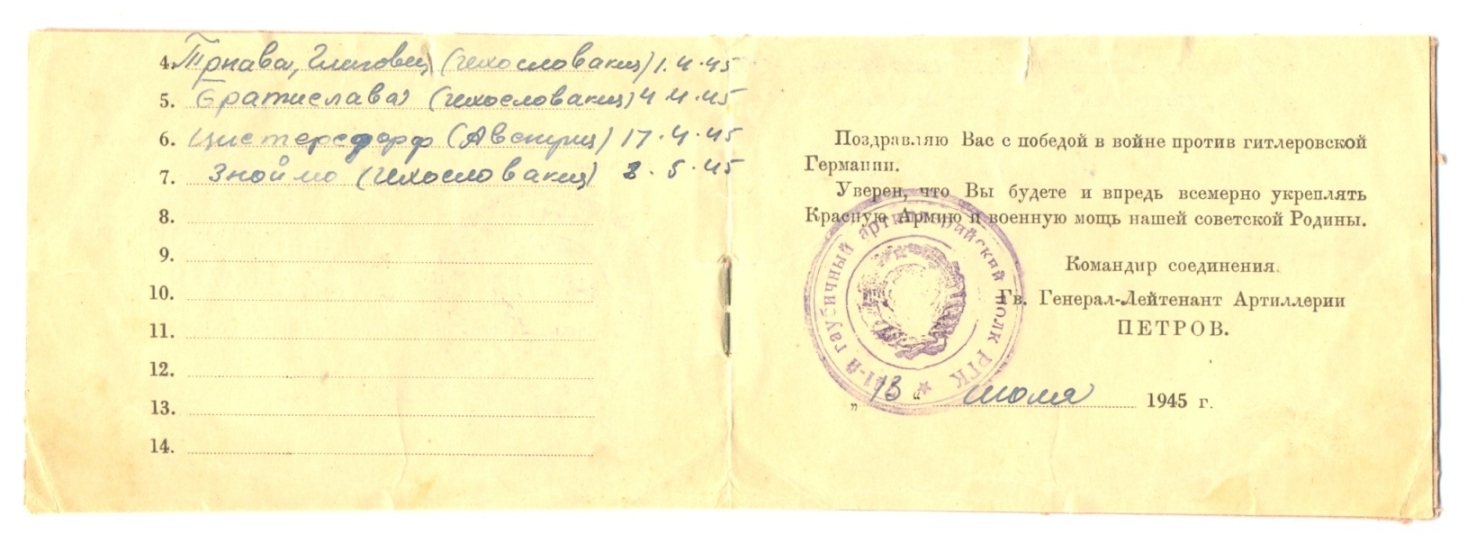 4. Трнава, Глаговец (чехословакия) 1.4.45
5. Братислава (чехословакия) 4.4.45
6. Цистерсдорф (Австрия) 17.4.45
7. Знойно (чехословакия) 8.5.45
8.
9.
10.
11.
12.
13.
14.
Поздравляю Вас с победой в войне против гитлеровской
Германии.
Уверен, что Вы будете и впредь всемерно укреплять
Красную Армию и военную мощь нашей советской Родины.
Командир соединения.
Гв. Генерал-Лейтенант Артиллерии
ПЕТРОВ.
„ 13 “ июля 1945 г.
гаубичный артиллерийский полк РГК